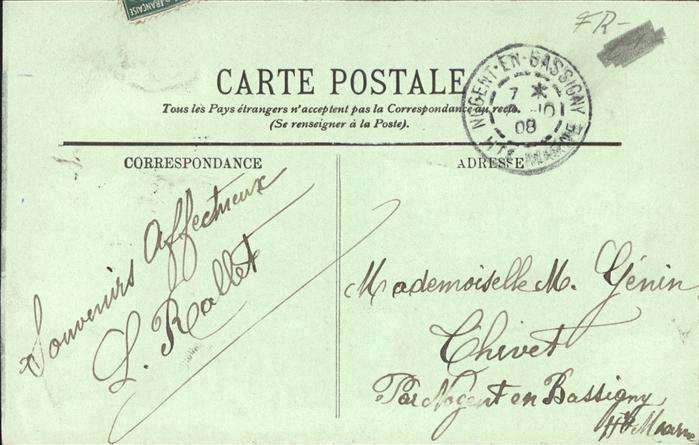 FR-
CARTE POSTALE
Tous les Pays étrangers n'acceptent pas la Correspondance au recto.
(Se renseigner à la Poste).
NOGENT-EN-BASSIGNY
7 *
10
08
HTE MARNE
CORRESPONDANCE
Souvenirs Affectueux
L. Rallet
ADRESSE
Mademoiselle M. Génin
Thivet
Par Nogent en Bassigny
Hte Marne